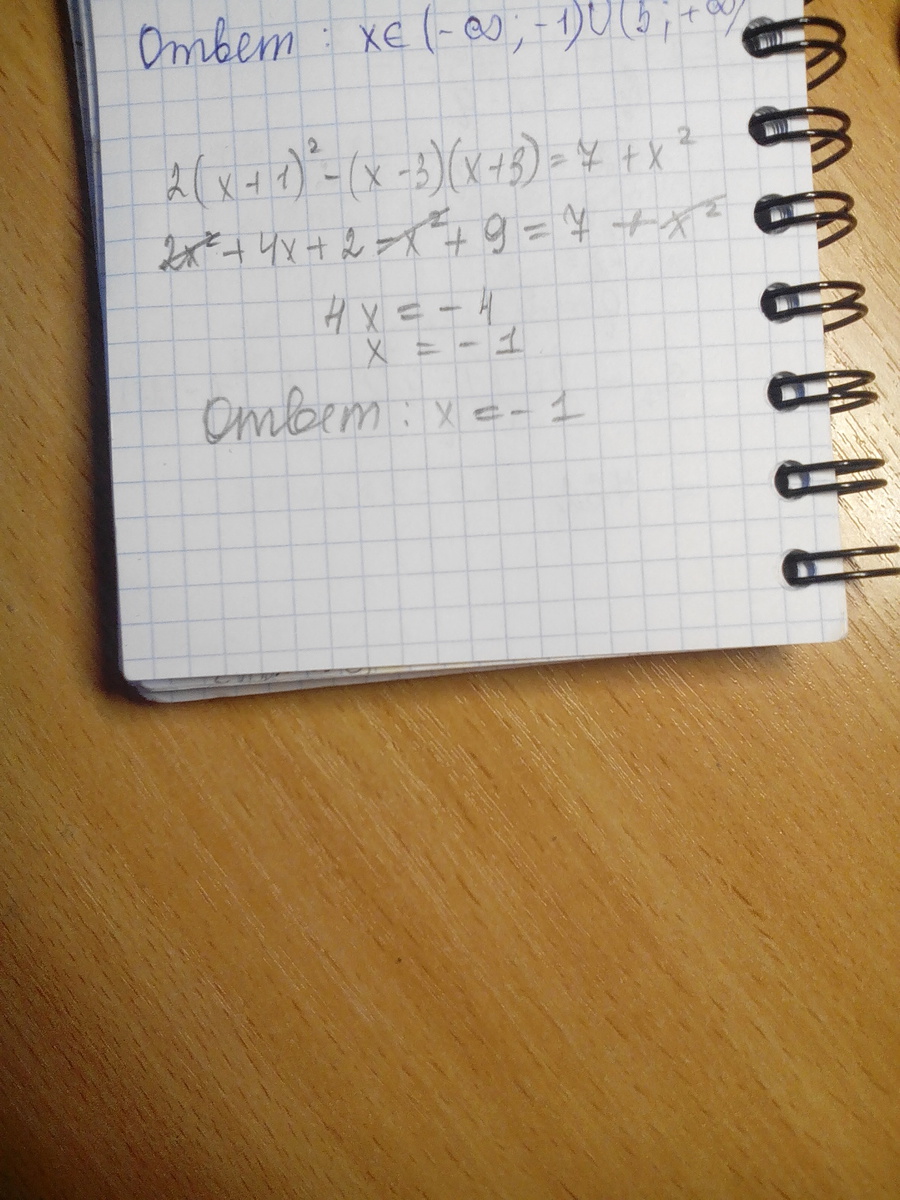 Ответ : x∈(-∞;-1)∪(5;+∞)
2(x+1)²-(x-3)(x+3)=7+x²
2x²+4x+2-x²+9=7+x²
4x=-4
x=-1
Ответ : x=-1